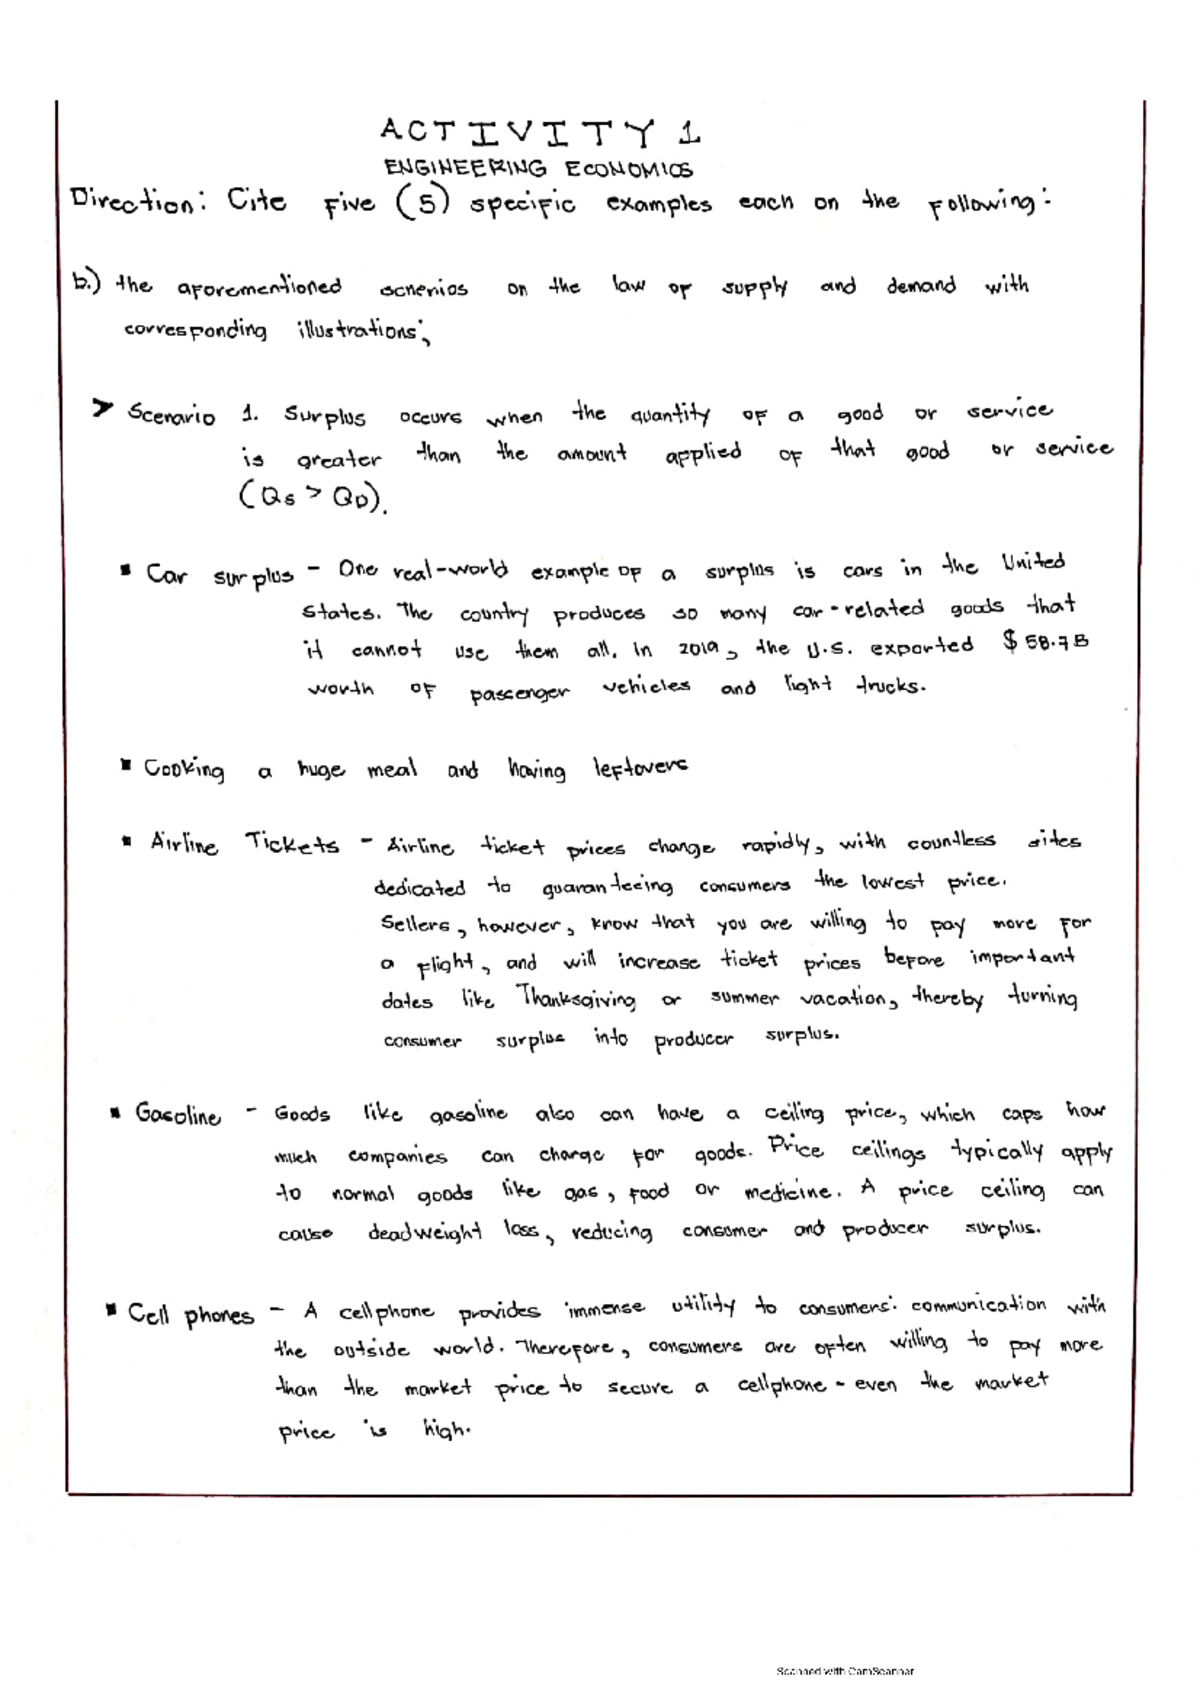 ACTIVITY 1
ENGINEERING ECONOMICS
Direction: Cite Five (5) specific examples each on the following:
b.) the aforementioned scnerios on the law of supply and demand with
corresponding illustrations;
➤ Scenario 1. Surplus occurs when the quantity of a good or service
is greater than the amount applied of that good or service
(Qs > QD).
▪ Car surplus - One real-world example of a surplus is cars in the United
States. The country produces so many car-related goods that
it cannot use them all. In 2019, the U.S. exported $58.7B
worth of passenger vehicles and light trucks.
▪ Cooking a huge meal and having leftovers
▪ Airline Tickets - Airline ticket prices change rapidly, with countless sites
dedicated to guaranteeing consumers the lowest price.
Sellers, however, know that you are willing to pay more for
a flight, and will increase ticket prices before important
dates like Thanksgiving or summer vacation, thereby turning
consumer surplus into producer surplus.
▪ Gasoline - Goods like gasoline also can have a ceiling price, which caps how
much companies can charge for goods. Price ceilings typically apply
to normal goods like gas, food or medicine. A price ceiling can
cause deadweight loss, reducing consumer and producer surplus.
▪ Cell phones - A cellphone provides immense utility to consumers: communication with
the outside world. Therefore, consumers are often willing to pay more
than the market price to secure a cellphone - even the market
price is high.
Scanned with CamScanner